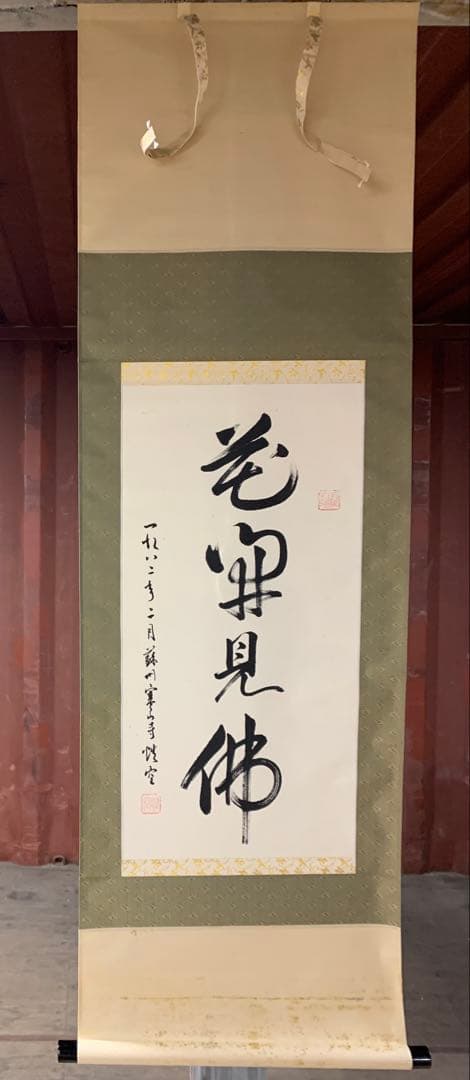 花開見佛
一九八二年二月蘇州寒山寺性空